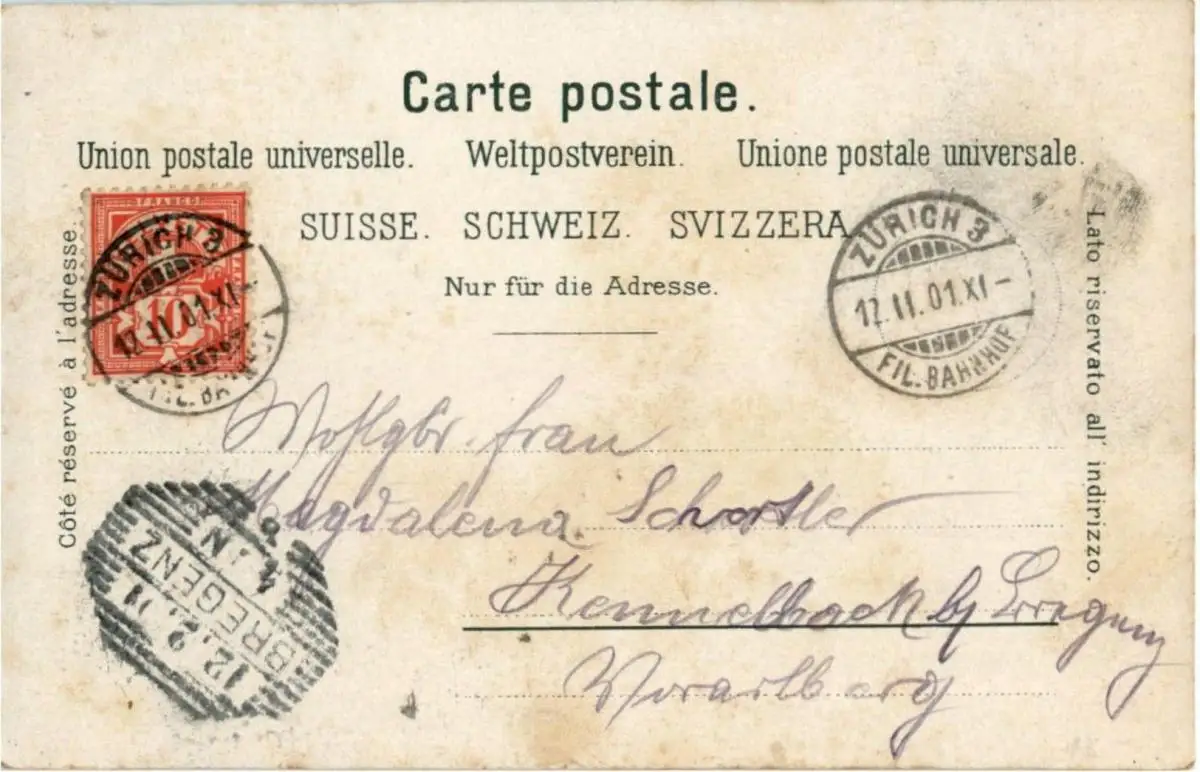 Carte postale.
Union postale universelle. Weltpostverein. Unione postale universale.
SUISSE. SCHWEIZ. SVIZZERA
Nur für die Adresse.
Côté réservé à l'adresse.
Lato riservato all' indirizzo.
FRANCO
10
ZÜRICH 3
12.II.01.XI-
FIL. BAHNHOF
ZÜRICH 3
12.II.01.XI-
FIL. BAHNHOF
Wohlgbr. Frau
Magdalena Schertler
Kennelbach by Bregenz
Vorarlberg
BREGENZ
12.2.01